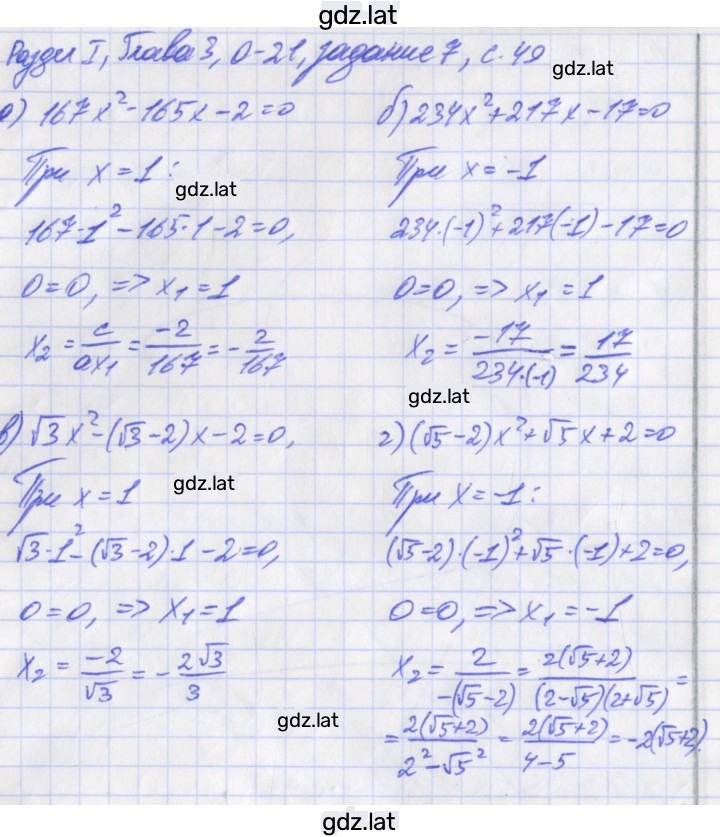 gdz.lat
Раздел I, Глава 3, О-21, задание 7, с. 49
gdz.lat
а) 167x² - 165x - 2 = 0
При x = 1 :
gdz.lat
167·1² - 165·1 - 2 = 0,
0 = 0, => x₁ = 1
x₂ = c/ax₁ = -2/167 = -2/167
б) 234x² + 217x - 17 = 0
При x = -1
234·(-1)² + 217(-1) - 17 = 0
0 = 0, => x₁ = 1
x₂ = -17/234·(-1) = 17/234
gdz.lat
в) √3x² - (√3 - 2)x - 2 = 0,
При x = 1
gdz.lat
√3·1² - (√3 - 2)·1 - 2 = 0,
0 = 0, => x₁ = 1
x₂ = -2/√3 = -2√3/3
gdz.lat
г) (√5 - 2)x² + √5x + 2 = 0
При x = -1 :
(√5 - 2)·(-1)² + √5·(-1) + 2 = 0,
0 = 0, => x₁ = -1
x₂ = 2/-(√5 - 2) = 2(√5 + 2)/(2 - √5)(2 + √5) =
= 2(√5 + 2)/2² - √5² = 2(√5 + 2)/4 - 5 = -2(√5 + 2).
gdz.lat